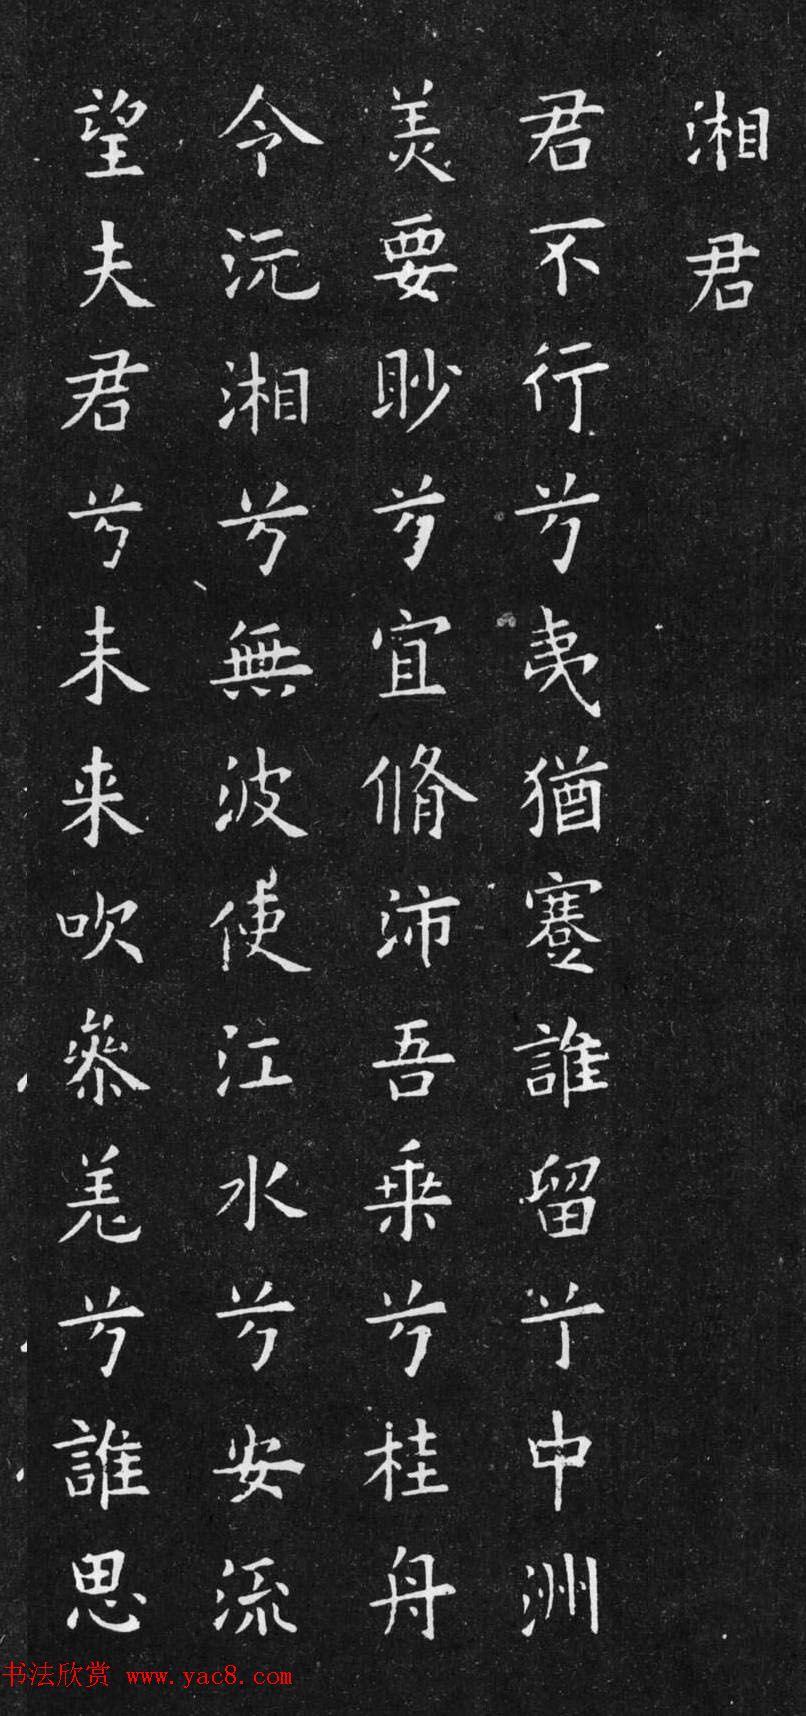 湘君
君不行兮夷猶蹇誰留兮中洲
美要眇兮宜脩沛吾乗兮桂舟
令沅湘兮無波使江水兮安流
望夫君兮未来吹參差兮誰思
书法欣赏 www.yac8.com